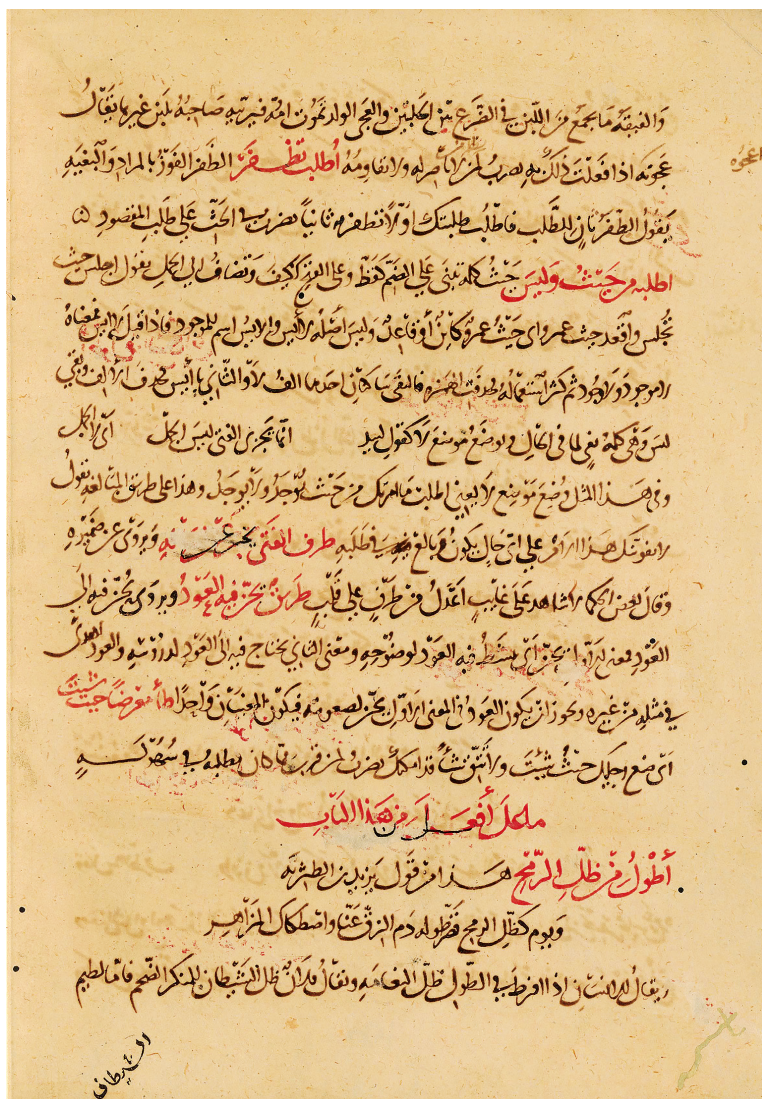 والفيقة ما يجمع من اللبن في الضرع بين الحلبتين والعجى الولد تموت امه فيربيه صاحبه بلبن غيرها يقال
اعجوه
عجوته اذا فعلت ذلك به يضرب لمن لا ناصر له ولا يقاومه اطلب تظفر الظفر الفوز بالمراد والبغيه
يقول الظفر ثان للطلب فاطلب طلبتك اولا تظفر به ثانيا يضرب في الحث على طلب المقصود
اطلبه من حيث وليس حيث كلمة تبنى على الضم كقط وعلى الفتح ككيف وتضاف الى الجمل يقول اجلس حيث
تجلس واقعد حيث عمرو اى حيث عمرو كائن أو قاعد وليس اصله لا أيس والايس اسم للموجود فاذا قيل لا ايس فمعناه
لا موجود ولا وجود ثم كثر استعماله فحذفت الهمزه فالتقى ساكنان احدهما الف لا والثاني ياء أيس فحذف الالف فبقي
ليس وهى كلمة نفي لما في الحال ويوضع موضع لا كقول لبيد انما يجزى الفتى ليس الجمل اى لا الجمل
وفي هذا المثل وضع موضع لا يعني اطلب ما امرتك من حيث يوجد ولا يوجد وهذا على طريق المبالغه يقول
لا يفوتنك هذا الامر على اى حال يكون وبالغ في طلبه طرف الفتى يخبر عن لسانه ويروى عن ضميره
وقال بعض الحكما لا شاهد على غايب اعدل من طرف على قلب طريق يحن فيه العود ويروى يحن فيه الى
العود فمعنى الاول يحن اى ينشط فيه العود لوضوحه ومعنى الثاني يحتاج فيه الى العود لدروسه والعود اهدى
في مثله من غيره ويجوز ان يكون العود في المعنى الاول ان يحن لصعوبته فيكون المعنيان واحدا طأ معرضا حيث شئت
اى ضع رجلك حيث شئت ولا تتق شيأ قد امكنك يضرب لمن قرب مما كان يطلبه في سهوله
ما على أفعل من هذا الباب
أطول من ظل الرمح هذا من قول يزيد بن الطثريه
ويوم كظل الرمح قصر طوله دم الزق عنا واصطكاك المزاهر
ويقال للانسان اذا افرط في الطول ظل النعامه ويقال فلان ظل الشيطان للمنكر الضخم فاما لطيم
الشيطان